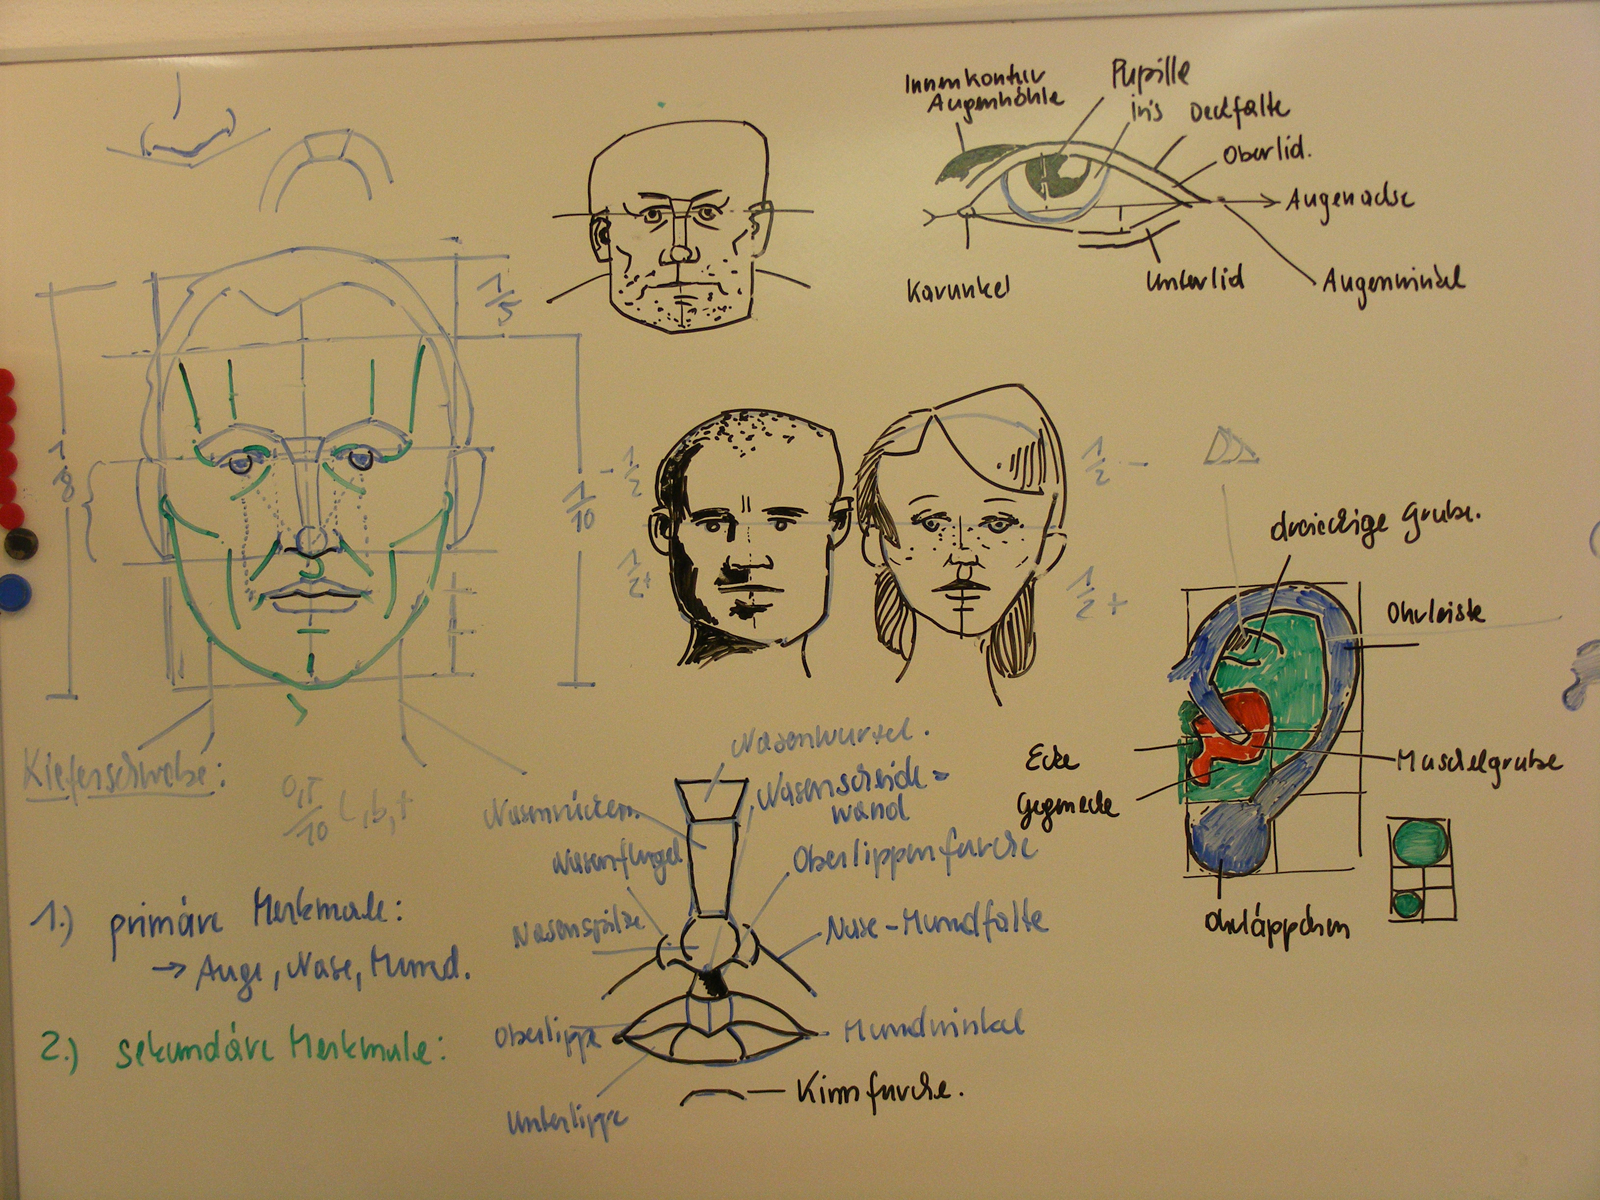 Innenkontur
Augenhöhle
Pupille
Iris
Deckfalte
Oberlid.
Augenachse
Karunkel
Unterlid
Augenwinkel
1/5
1/8
1/10
-1/2
1/2+
1/2-
1/2+
dreieckige Grube.
Ohrleiste
Ecke
Gegenecke
Muschelgrube
Ohrläppchen
0,5/10 l, b, t
1.) primäre Merkmale:
→ Auge, Nase, Mund.
2.) sekundäre Merkmale:
Nasenwurzel.
Nasenrücken
Nasenscheide=
wand
Nasenflügel
Oberlippenfurche
Nasenspitze
Nase-Mundfalte
Oberlippe
Mundwinkel
Unterlippe
Kinnfurche.